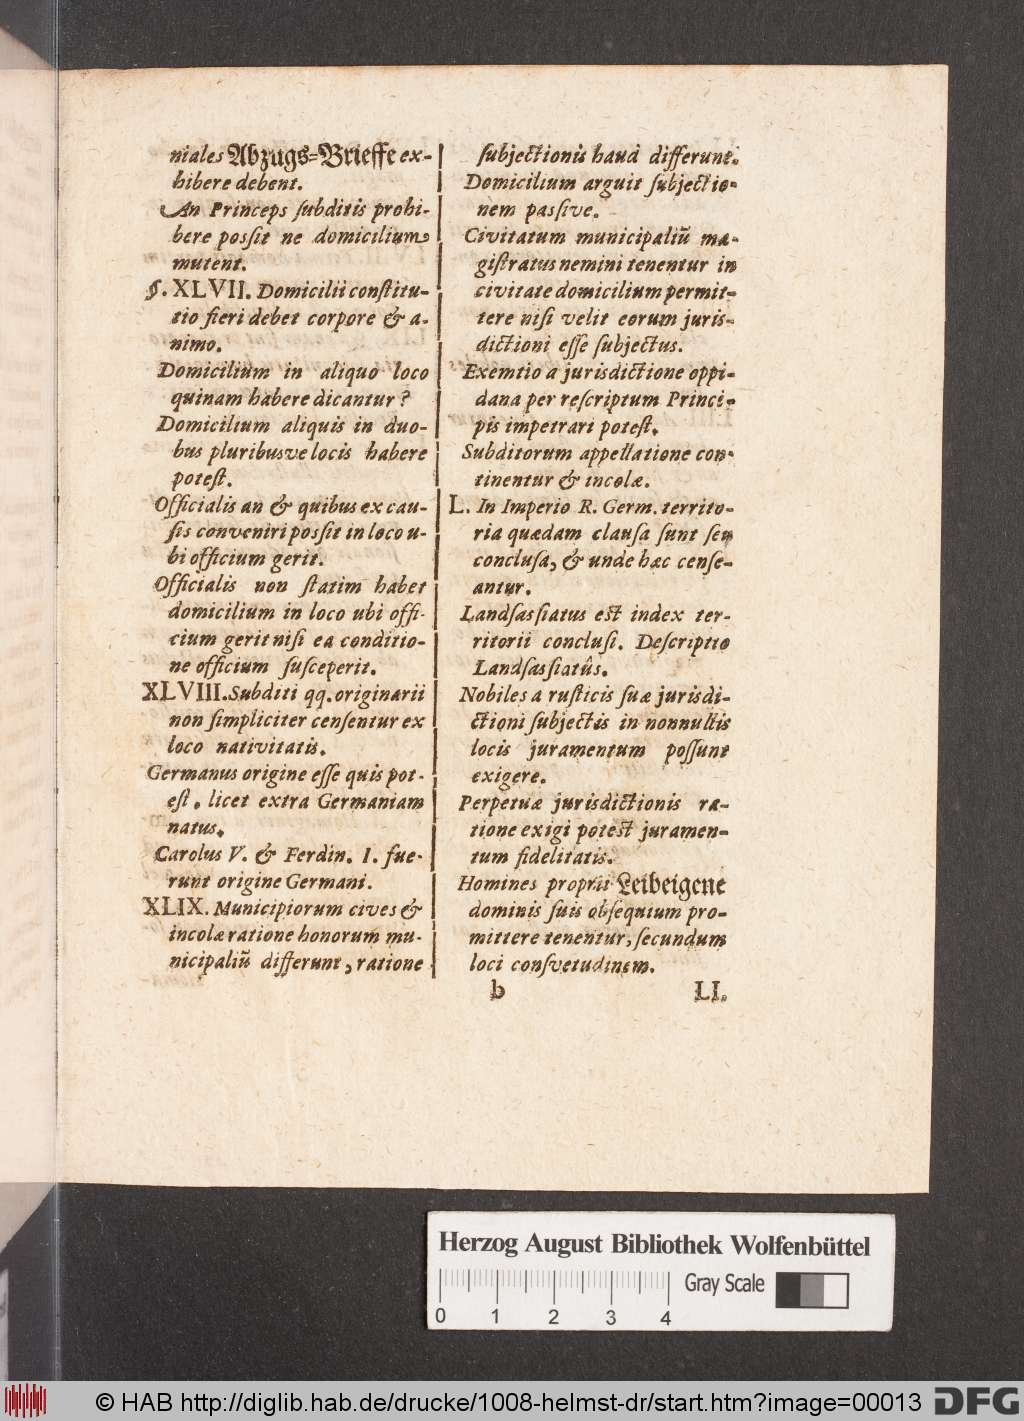 niales Abzugs=Brieffe ex-
hibere debent.
An Princeps ſubditis prohi-
bere poſſit ne domicilium
mutent.
§. XLVII. Domicilii conſtitu-
tio fieri debet corpore & a-
nimo.
Domicilium in aliquo loco
quinam habere dicantur?
Domicilium aliquis in duo-
bus pluribusve locis habere
poteſt.
Officialis an & quibus ex cau-
ſis conveniri poſſit in loco u-
bi officium gerit.
Officialis non ſtatim habet
domicilium in loco ubi offi-
cium gerit niſi ea conditio-
ne officium ſuſceperit.
XLVIII. Subditi qq. originarii
non ſimpliciter cenſentur ex
loco nativitatis.
Germanus origine eſſe quis pot-
eſt, licet extra Germaniam
natus.
Carolus V. & Ferdin. I. fue-
runt origine Germani.
XLIX. Municipiorum cives &
incolæ ratione honorum mu-
nicipaliũ differunt, ratione
ſubjectionis haud differunt.
Domicilium arguit ſubjectio-
nem paſſive.
Civitatum municipaliũ ma-
giſtratus nemini tenentur in
civitate domicilium permit-
tere niſi velit eorum juris-
dictioni eſſe ſubjectus.
Exemtio a jurisdictione oppi-
dana per reſcriptum Princi-
pis impetrari poteſt.
Subditorum appellatione con-
tinentur & incolæ.
L. In Imperio R. Germ. territo-
ria quædam clauſa ſunt ſeu
concluſa, & unde hæc cenſe-
antur.
Landſaſſiatus est index ter-
ritorii concluſi. Deſcriptio
Landſaſſiatûs.
Nobiles a ruſticis ſuæ jurisdi-
ctioni ſubjectis in nonnullis
locis juramentum poſſunt
exigere.
Perpetuæ jurisdictionis ra-
tione exigi potest juramen-
tum fidelitatis.
Homines proprii Leibeigene
dominis ſuis obſequium pro-
mittere tenentur, ſecundum
loci conſvetudinem.
b LI.
Herzog August Bibliothek Wolfenbüttel
Gray Scale
0 1 2 3 4
© HAB http://diglib.hab.de/drucke/1008-helmst-dr/start.htm?image=00013 DFG